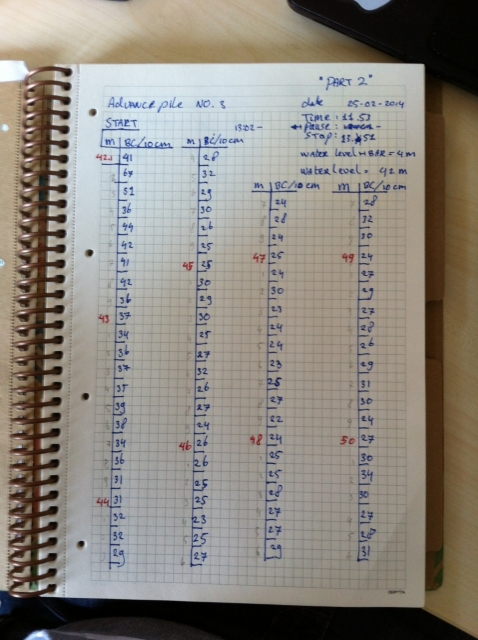 "PART 2"
Advance pile NO. 3
date 25-02-2014
START
13:02 -
Time: 11.53
← pause:
Stop: 13.51
water level H BAR = 4 m
water level = 42 m
m BC/10cm
42.1 41
67
51
36
44
42
41
42
36
43 37
34
36
37
35
39
38
34
36
31
44 31
32
32
29
m BC/10cm
28
32
29
30
26
25
45 25
30
29
30
25
27
32
26
27
24
46 26
26
25
25
23
25
27
m BC/10cm
24
28
24
47 25
24
30
23
24
24
23
25
27
22
48 24
25
25
28
27
27
29
m BC/10cm
28
32
30
49 24
27
29
27
28
26
29
31
30
24
50 27
30
34
30
27
28
31